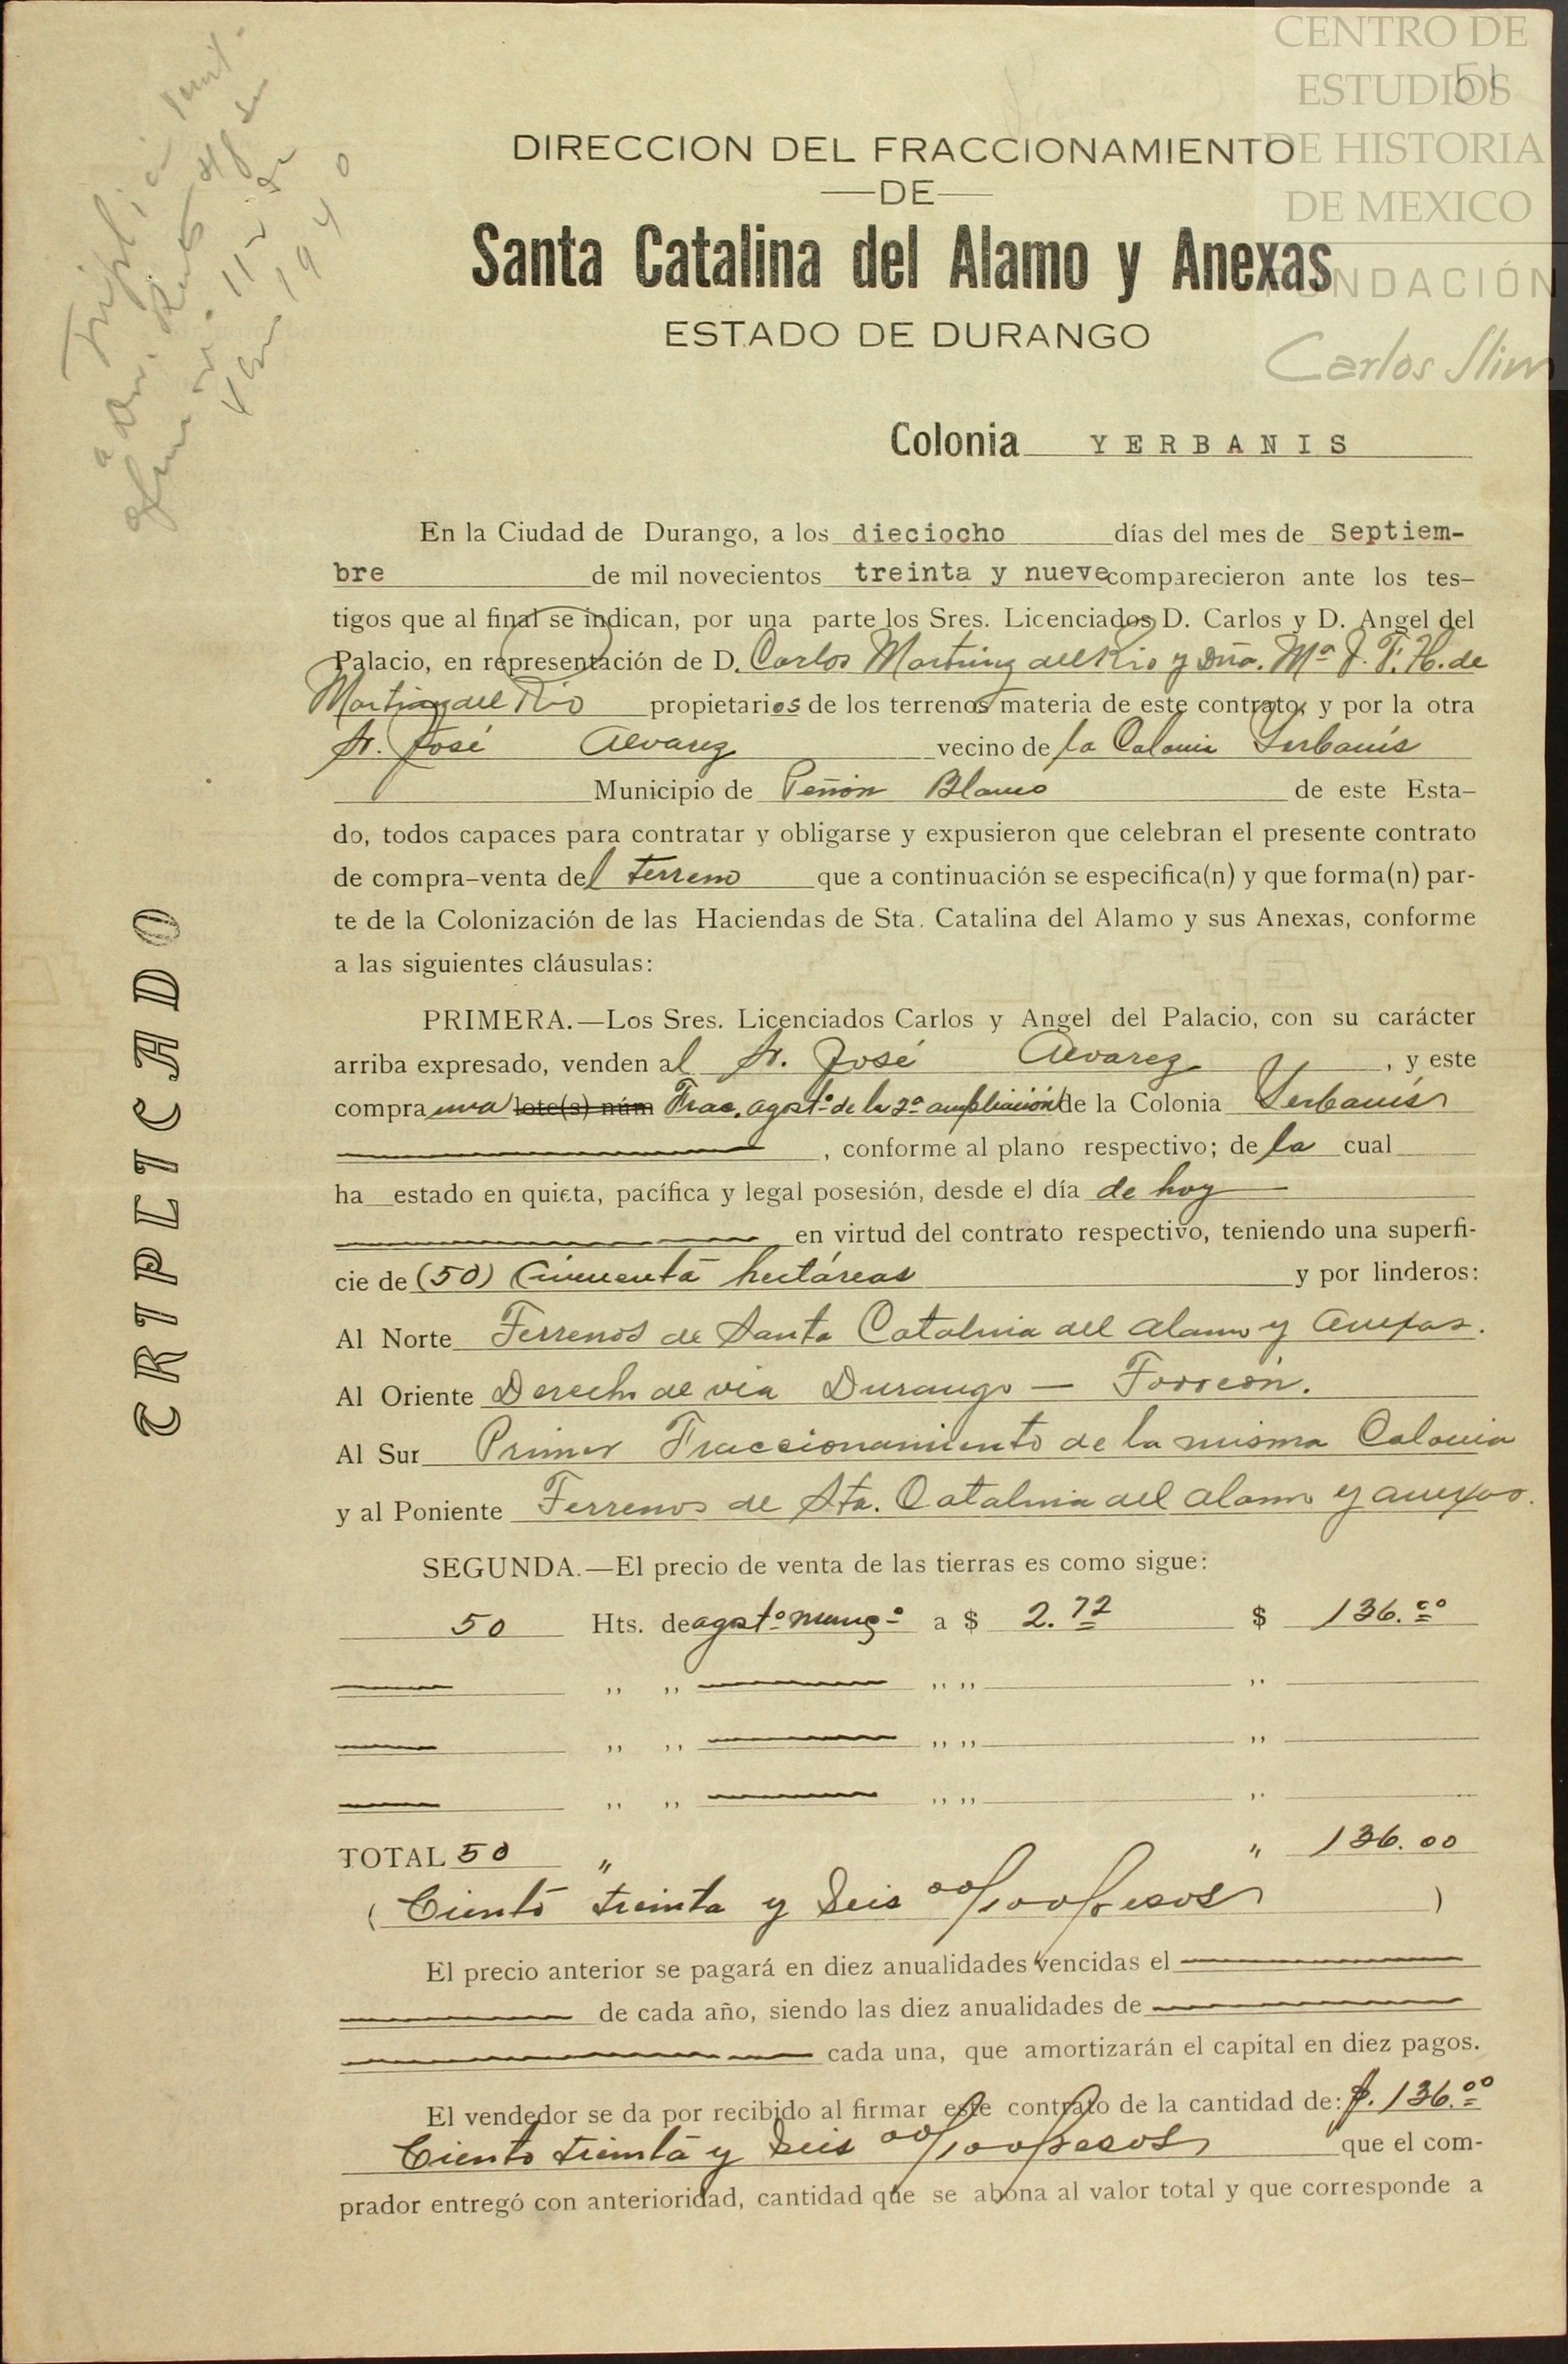 CENTRO DE
ESTUDIOS
DE HISTORIA
DE MEXICO
FUNDACIÓN
Carlos Slim
51
1940
DIRECCION DEL FRACCIONAMIENTO
DE
Santa Catalina del Alamo y Anexas
ESTADO DE DURANGO
Colonia YERBANIS
En la Ciudad de Durango, a los dieciocho días del mes de Septiem-
bre de mil novecientos treinta y nueve comparecieron ante los tes-
tigos que al final se indican, por una parte los Sres. Licenciados D. Carlos y D. Angel del
Palacio, en representación de D. Carlos Martinez del Rio y Dña. Mª J. F. H. de
Martinez del Rio propietarios de los terrenos materia de este contrato, y por la otra
Sr. José Alvarez vecino de la Colonia Yerbanís
Municipio de Peñón Blanco de este Esta-
do, todos capaces para contratar y obligarse y expusieron que celebran el presente contrato
de compra-venta del terreno que a continuación se especifica(n) y que forma(n) par-
te de la Colonización de las Haciendas de Sta. Catalina del Alamo y sus Anexas, conforme
a las siguientes cláusulas:
PRIMERA.—Los Sres. Licenciados Carlos y Angel del Palacio, con su carácter
arriba expresado, venden al Sr. José Alvarez, y este
compra una lote(s) núm Frac. agostº de la 2ª ampliación de la Colonia Yerbanís
, conforme al plano respectivo; de la cual
ha estado en quieta, pacífica y legal posesión, desde el día de hoy
en virtud del contrato respectivo, teniendo una superfi-
cie de (50) Cincuenta hectáreas y por linderos:
Al Norte Terrenos de Santa Catalina del Alamo y Anexas.
Al Oriente Derecho de via Durango — Torreón.
Al Sur Primer Fraccionamiento de la misma Colonia
y al Poniente Terrenos de Sta. Catalina del Alamo y anexas.
SEGUNDA.—El precio de venta de las tierras es como sigue:
50 Hts. de agostº a $ 2.72 $ 136.00
,, ,, ,, ,, ,,
,, ,, ,, ,, ,,
,, ,, ,, ,, ,,
TOTAL 50 " " 136.00
(Ciento treinta y Seis 00/100 pesos)
El precio anterior se pagará en diez anualidades vencidas el
de cada año, siendo las diez anualidades de
cada una, que amortizarán el capital en diez pagos.
El vendedor se da por recibido al firmar este contrato de la cantidad de: $. 136.00
Ciento treinta y Seis 00/100 pesos que el com-
prador entregó con anterioridad, cantidad que se abona al valor total y que corresponde a
TRIPLICADO